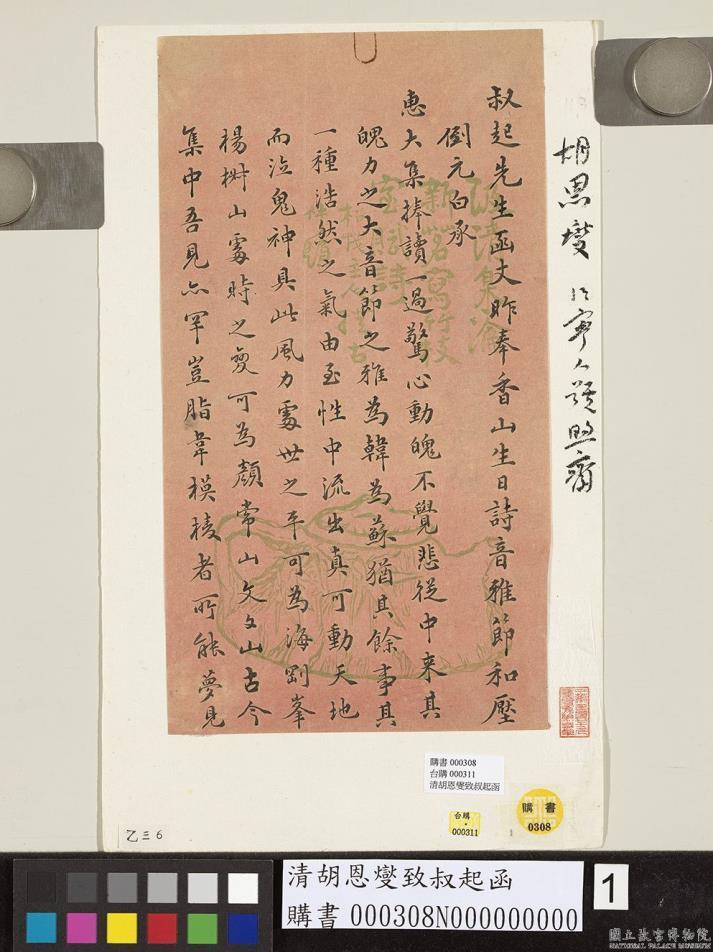 叔起先生函丈昨奉香山生日詩音雅節和壓
倒元白承
惠大集捧讀一過驚心動魄不覺悲從中来其
魄力之大音節之雅為韓為蘇猶其餘事其
一種浩然之氣由至性中流出真可動天地
而泣鬼神具此風力處世之平可為海剛峯
楊椒山處時之變可為顏常山文文山古今
集中吾見亦罕豈脂韋模棱者所能夢見
胡恩燮 江寧人 號煦齋
購書 000308
台購 000311
清胡恩燮致叔起函
台購
000311
購書
0308
乙三6
清胡恩燮致叔起函
購書 000308N000000000
1
國立故宮博物院
NATIONAL PALACE MUSEUM